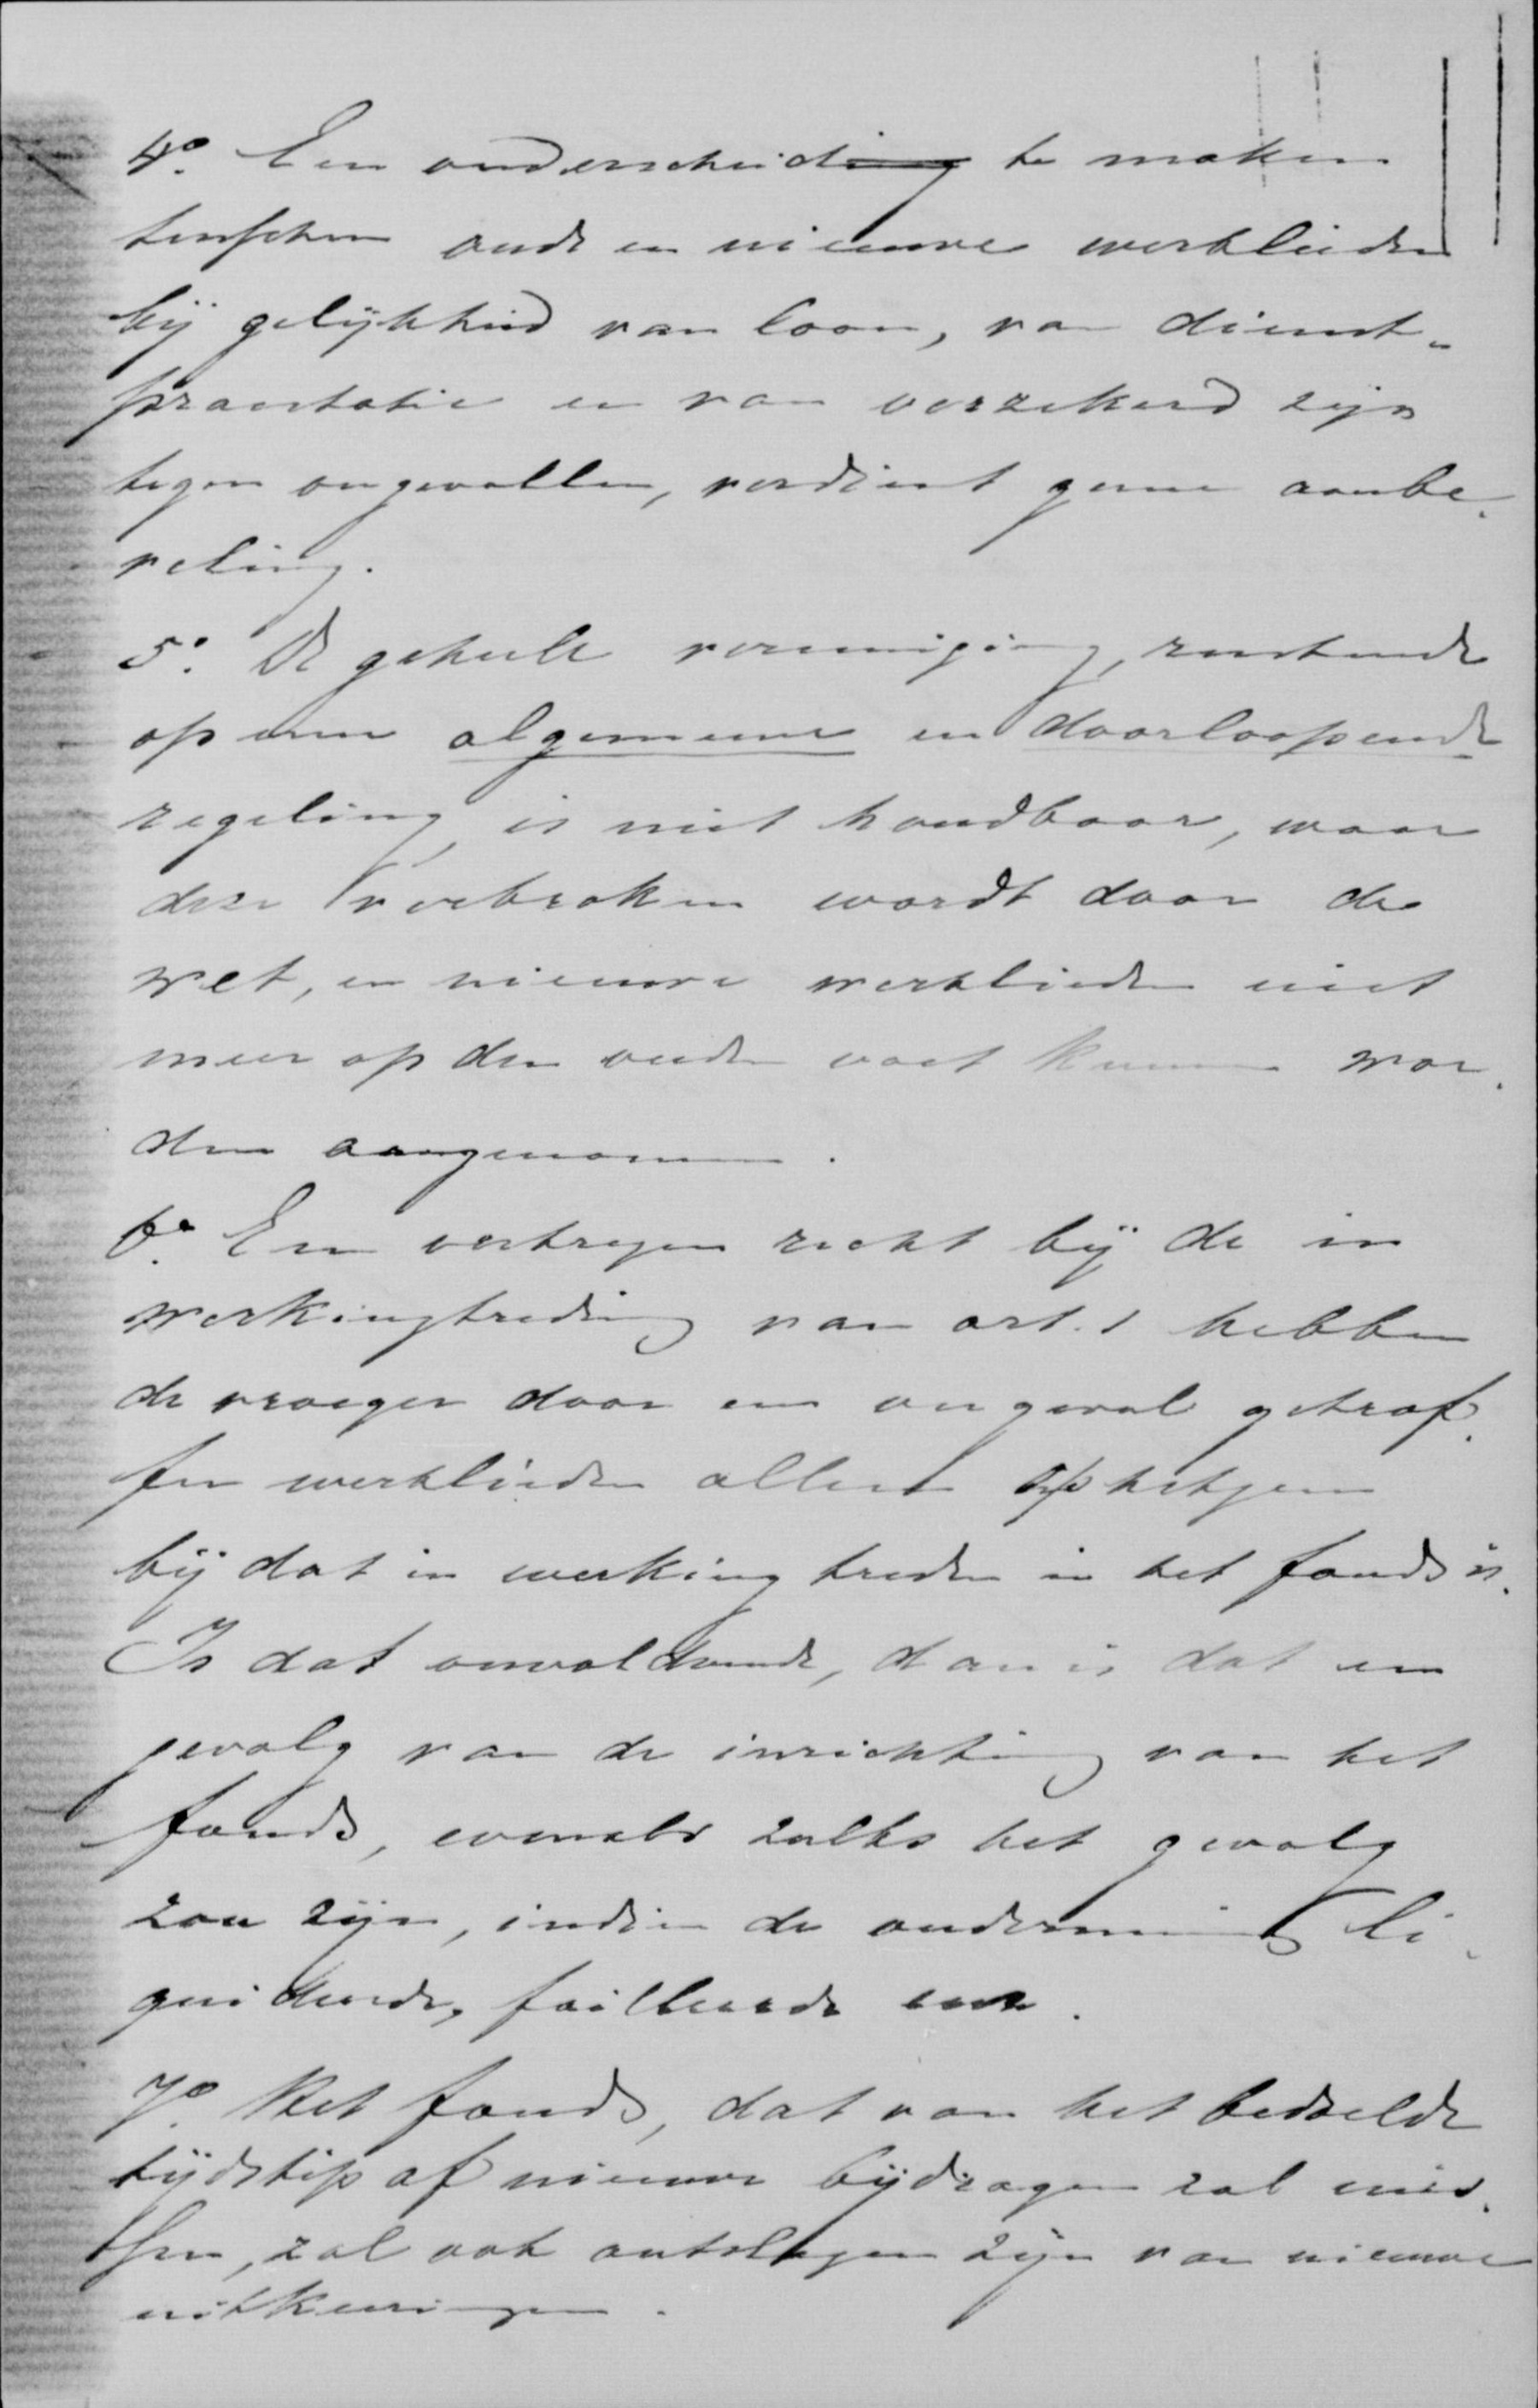 4o. Een onderscheiding te maken
tusschen oude en nieuwe werklieden
bij gelijkheid van loon, van dienst-
praestatie en van verzekerd zijn
tegen ongevallen, verdient geene aanbe-
veling.
5o. De geheele vereeniging, rustende
op eene algemeene en doorloopende
regeling, is niet houdbaar, waar
deze verbroken wordt door de
wet, en nieuwe werklieden niet
meer op den ouden voet kunnen wor-
den aangenomen.
6o. Een verkregen recht bij de in
werkingtreding van art. 1 hebben
de vroeger door een ongeval getrof-
fen werklieden alleen op hetgeen
bij dat in werking treden in het fonds is.
Is dat onvoldoende, dan is dat een
gevolg van de inrichting van het
fonds, evenals zulks het gevolg
zou zijn, indien de onderneming li-
quideerde, failleerde enz.
7o. Het fonds, dat van het bedoelde
tijdstip af nieuwe bijdragen zal mis-
sen, zal ook ontslagen zijn van nieuwe
uitkeeringen.